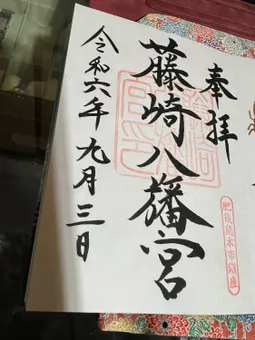 奉拝
藤崎八旛宮
令和六年九月三日
肥後熊本市鎮座